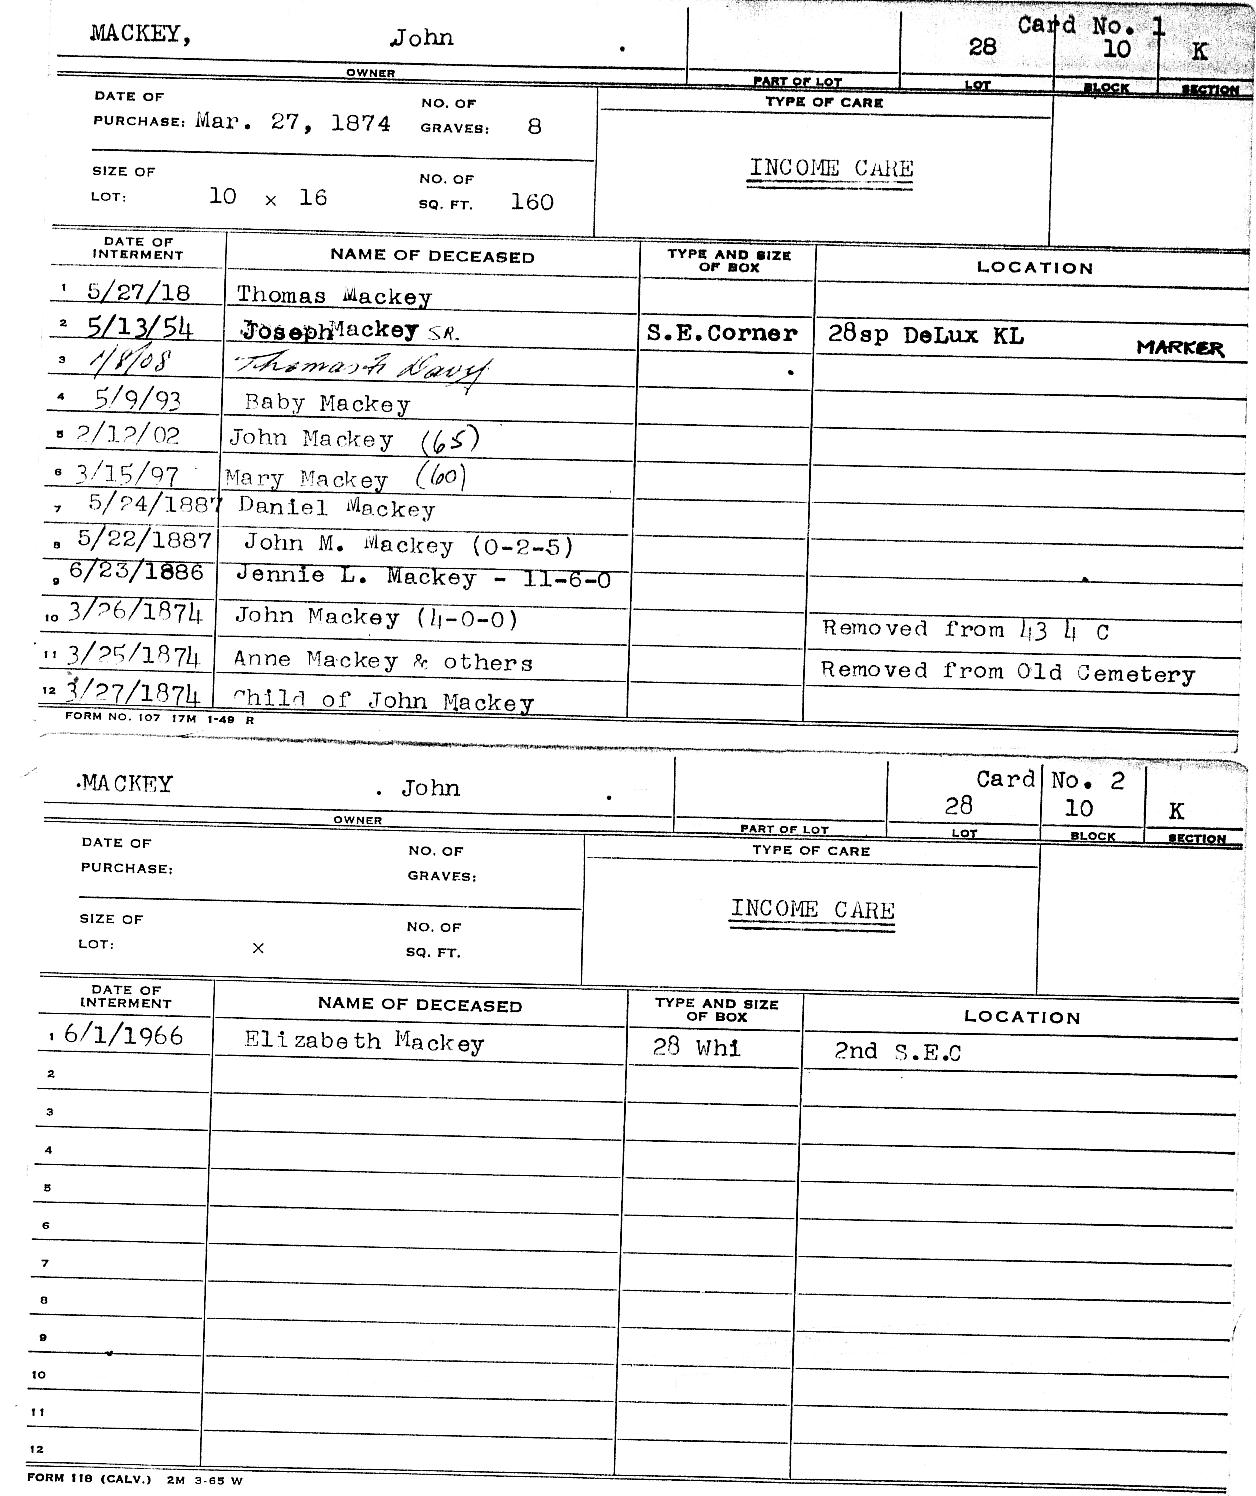 Card No. 1
MACKEY, John . 28 10 K
OWNER PART OF LOT LOT BLOCK SECTION
DATE OF PURCHASE: Mar. 27, 1874 NO. OF GRAVES: 8 TYPE OF CARE
INCOME CARE
SIZE OF LOT: 10 x 16 NO. OF SQ. FT. 160
DATE OF INTERMENT NAME OF DECEASED TYPE AND SIZE OF BOX LOCATION
1 5/27/18 Thomas Mackey
2 5/13/54 Joseph Mackey SR. S.E.Corner 28sp DeLux KL MARKER
3 1/8/08 Thomas Davy
4 5/9/93 Baby Mackey
5 2/12/02 John Mackey (65)
6 3/15/97 Mary Mackey (60)
7 5/24/1887 Daniel Mackey
8 5/22/1887 John M. Mackey (0-2-5)
9 6/23/1886 Jennie L. Mackey - 11-6-0
10 3/26/1874 John Mackey (4-0-0) Removed from 43 4 C
11 3/25/1874 Anne Mackey & others Removed from Old Cemetery
12 3/27/1874 Child of John Mackey
FORM NO. 107 17M 1-49 R
Card No. 2
MACKEY . John . 28 10 K
OWNER PART OF LOT LOT BLOCK SECTION
DATE OF PURCHASE: NO. OF GRAVES: TYPE OF CARE
INCOME CARE
SIZE OF LOT: x NO. OF SQ. FT.
DATE OF INTERMENT NAME OF DECEASED TYPE AND SIZE OF BOX LOCATION
1 6/1/1966 Elizabeth Mackey 28 Whi 2nd S.E.C
2
3
4
5
6
7
8
9
10
11
12
FORM 118 (CALV.) 2M 3-65 W